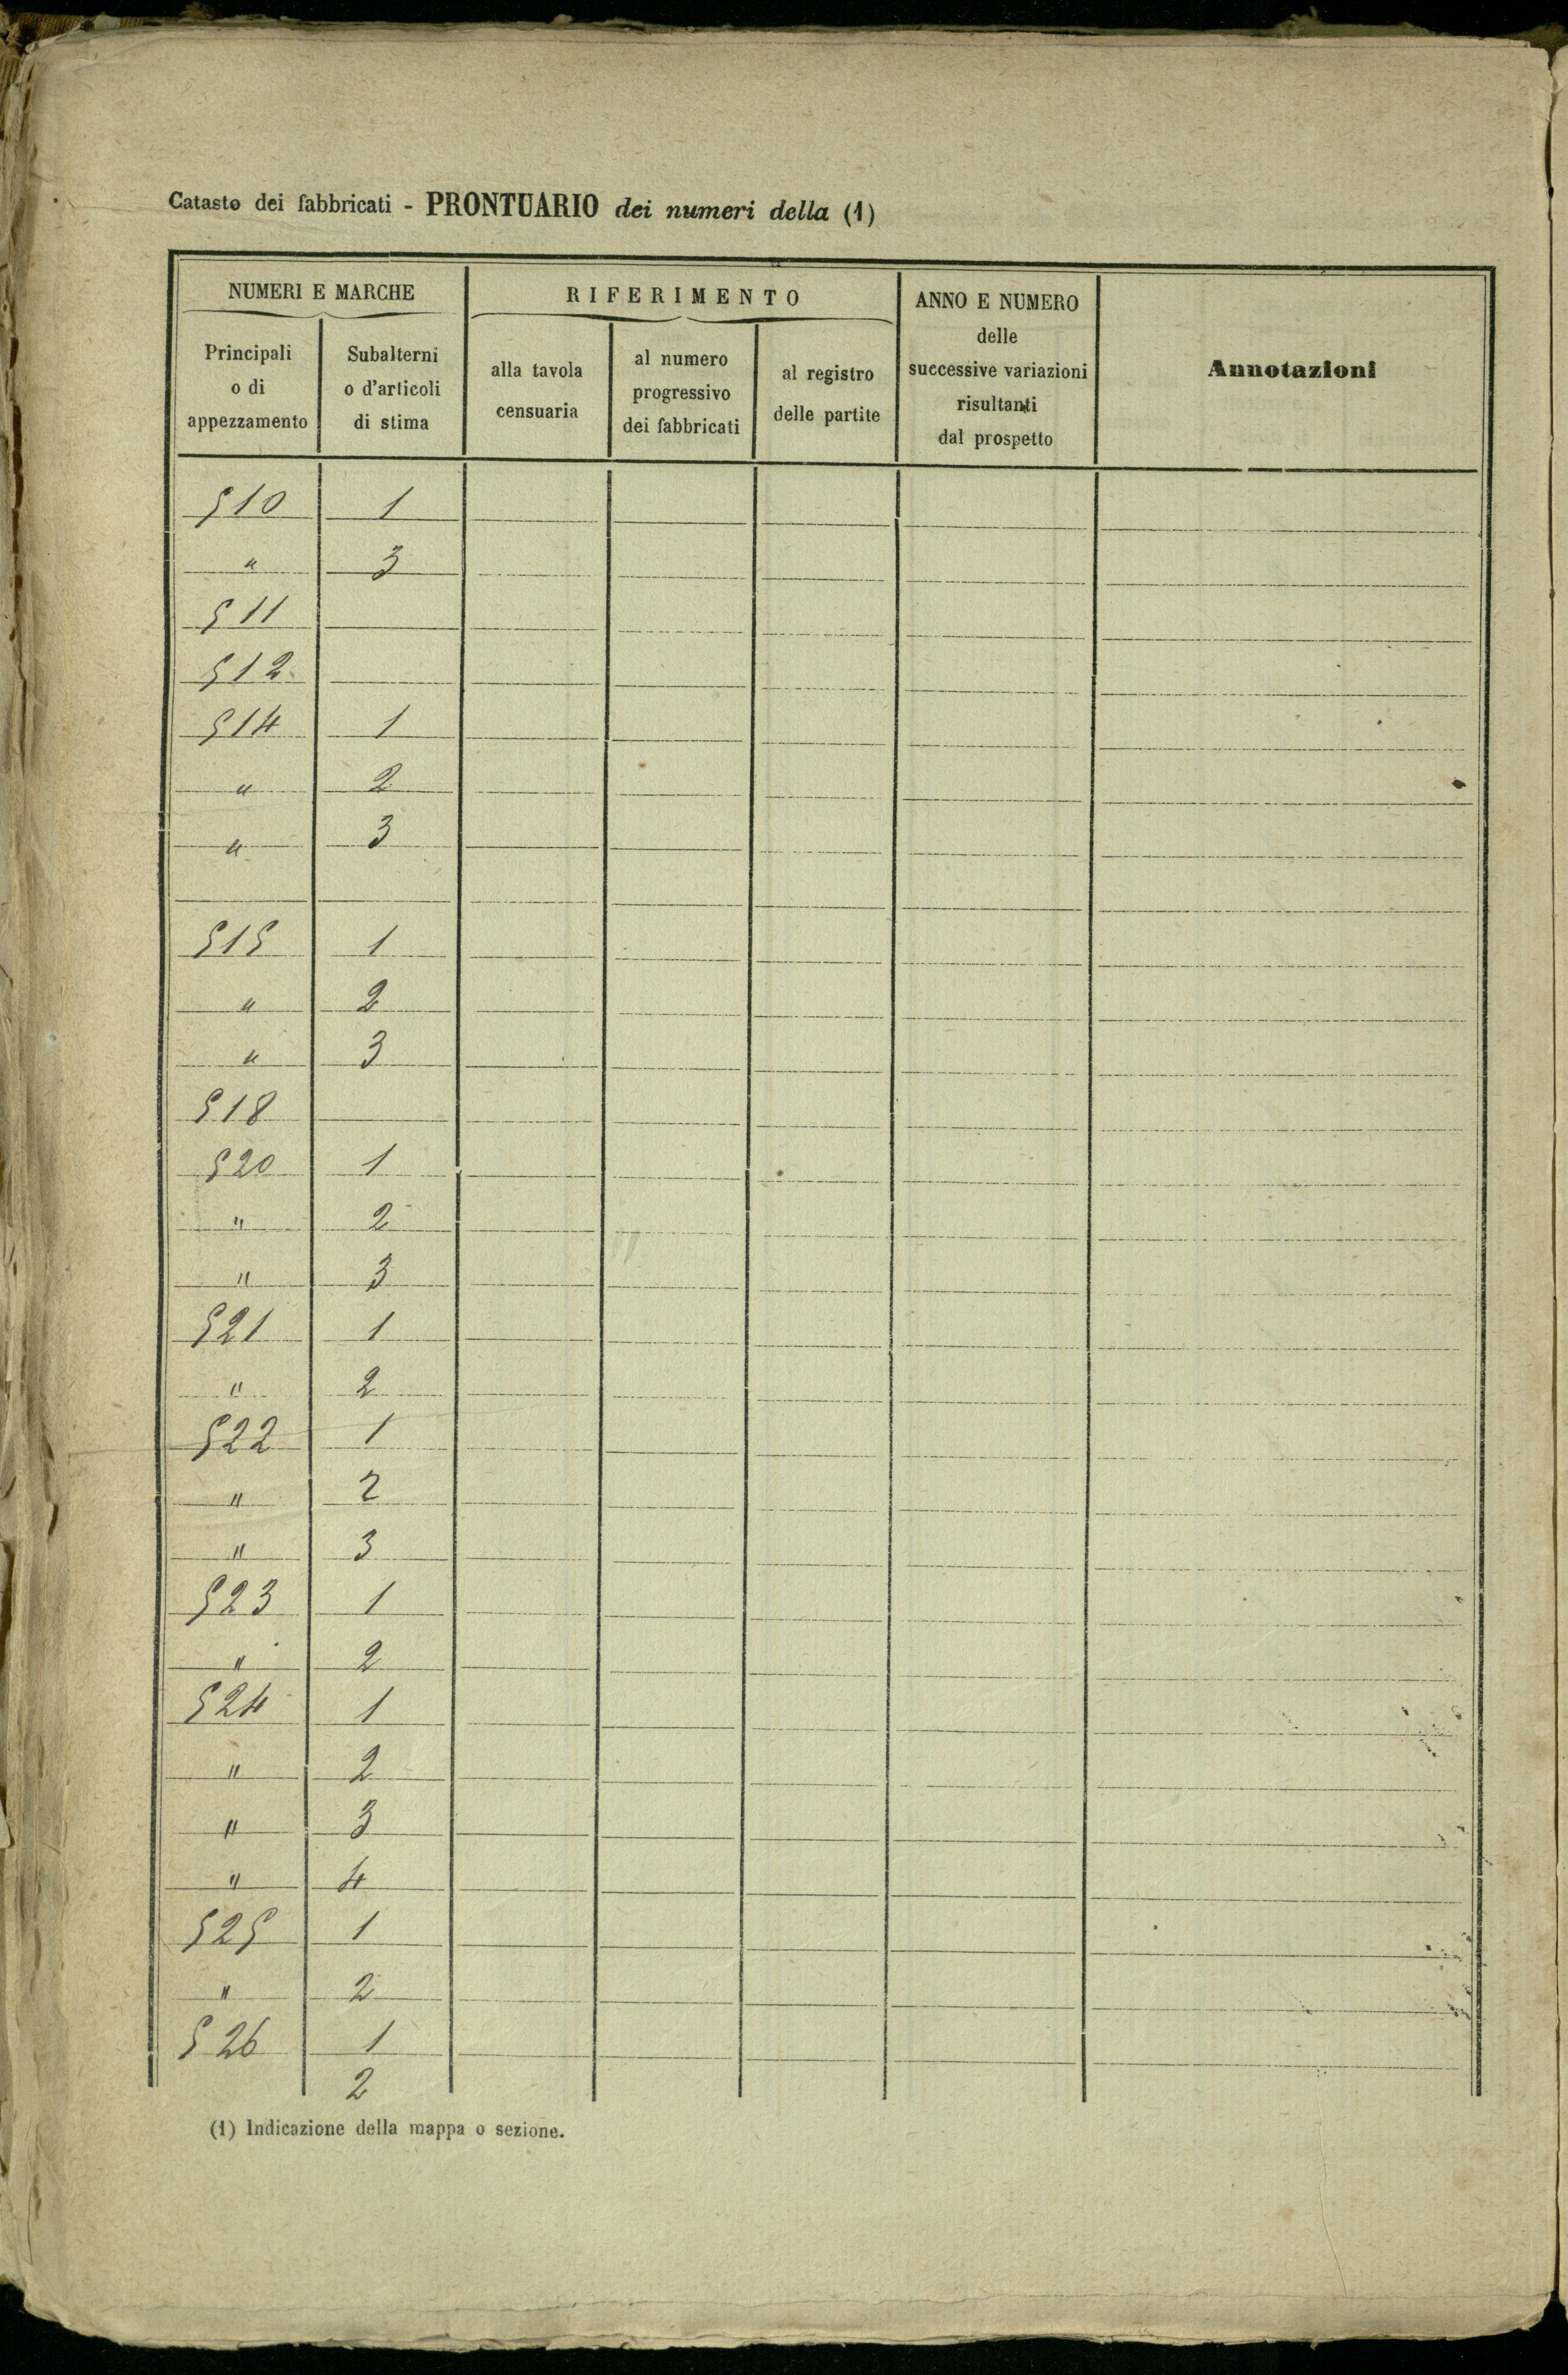 Catasto dei fabbricati - PRONTUARIO dei numeri della (1)
NUMERI E MARCHE
RIFERIMENTO
ANNO E NUMERO
delle
successive variazioni
risultanti
dal prospetto
Annotazioni
Principali
o di
appezzamento
Subalterni
o d'articoli
di stima
alla tavola
censuaria
al numero
progressivo
dei fabbricati
al registro
delle partite
510 1
" 3
511
512
514 1
" 2
" 3
515 1
" 2
" 3
518
520 1
" 2
" 3
521 1
" 2
522 1
" 2
" 3
523 1
" 2
524 1
" 2
" 3
" 4
525 1
" 2
526 1
2
(1) Indicazione della mappa o sezione.